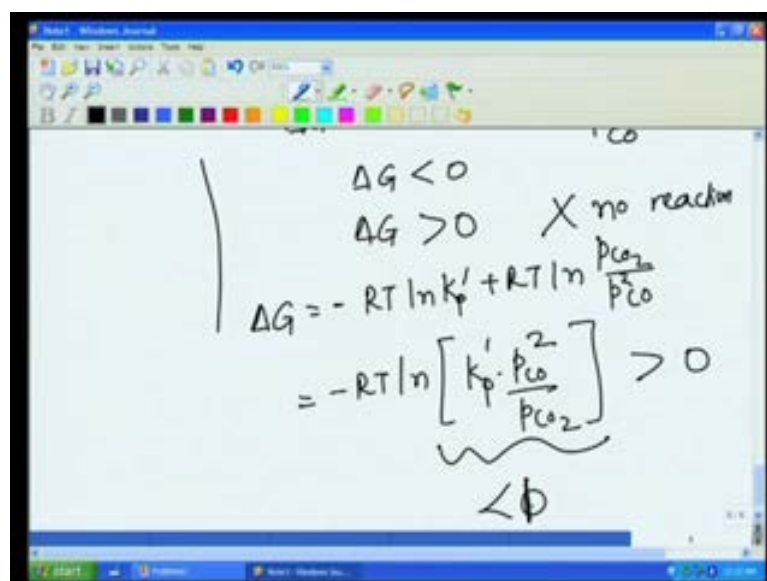 Note1 - Windows Journal
File Edit View Insert Actions Tools Help
B I
P CO
ΔG < 0
ΔG > 0 X no reaction
ΔG = - RT ln Kp' + RT ln pCO2 / p²CO
= - RT ln [ Kp' · pCO² / pCO2 ] > 0
< 1
start